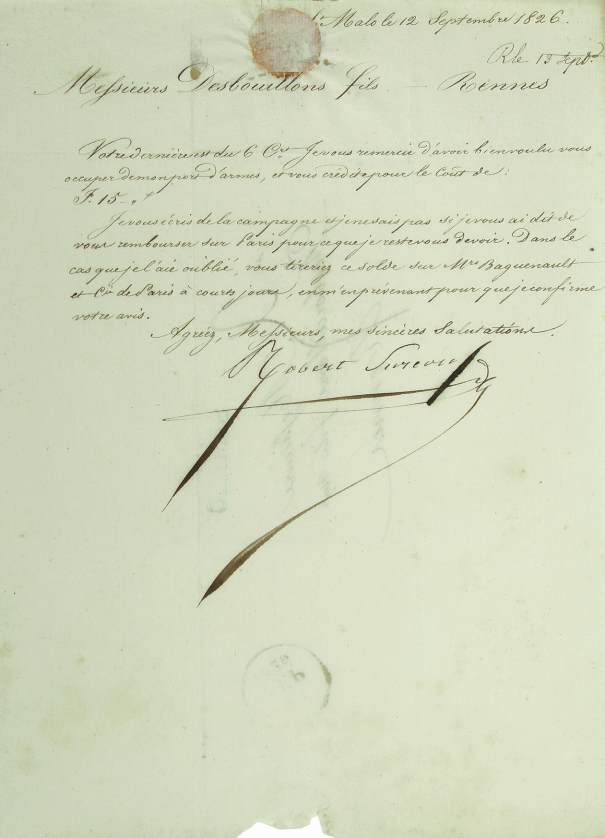 St. Malo le 12 Septembre 1826.
R le 13 Septb.
Messieurs Desbouillons fils - Rennes
Votre dernière est du 6 Ct. Je vous remercie d'avoir bien voulu vous
occuper de mon port d'armes, et vous crédite pour le Coût de :
F. 15 -
Je vous écris de la campagne et je ne sais pas si je vous ai dit de
vous rembourser sur Paris pour ce que je reste vous devoir. Dans le
cas que je l'aie oublié, vous tireriez ce solde sur Mrs Baguenault
et Cie de Paris à courts jours, en m'en prévenant pour que je confirme
votre avis.
Agréez, Messieurs, mes sincères Salutations.
Robert Surcouf